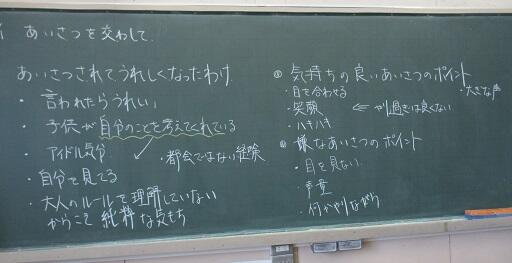 あいさつを交わして、
あいさつされてうれしくなったわけ
・言われたらうれしい
・子供が自分のことを考えてくれている
・アイドル気分
・都会ではない経験
・自分を見てる
・大人のルールを理解していない
からこそ純粋な気もち
◎気持ちの良いあいさつのポイント
・目を合わせる ・大きな声
・笑顔 ← やり過ぎは良くない
・ハキハキ
◎嫌なあいさつのポイント
・目を見ない
・声量
・何かやりながら